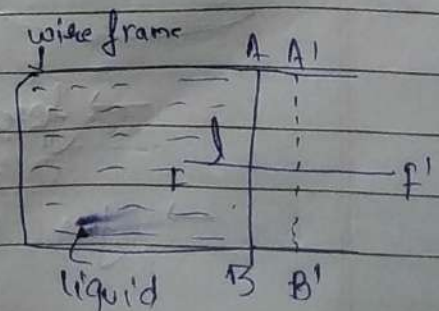 wire frame
A A'
l
F F'
liquid B B'